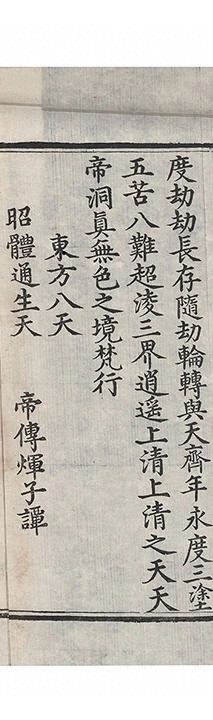 度劫劫長存隨劫輪轉與天齊年永度三塗
五苦八難超淩三界逍遥上清上清之天天
帝洞真無色之境梵行
東方八天
昭體通生天
帝傳煇子譚